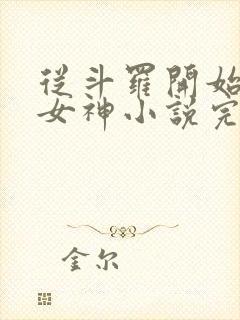 從斗羅開始
女神小說完
金尔